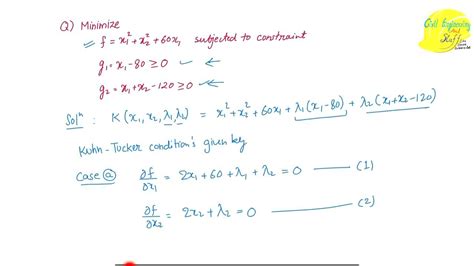 Q) Minimize
f = x₁² + x₂² + 60x₁ subjected to constraint
g₁ = x₁ - 80 ≥ 0
g₂ = x₁ + x₂ - 120 ≥ 0
Solⁿ : K(x₁, x₂, λ₁, λ₂) = x₁² + x₂² + 60x₁ + λ₁(x₁-80) + λ₂(x₁+x₂-120)
Kuhn-Tucker condition's given by
Case ⓐ ∂f/∂x₁ = 2x₁ + 60 + λ₁ + λ₂ = 0 —— (1)
∂f/∂x₂ = 2x₂ + λ₂ = 0 —— (2)
Civil Engineering